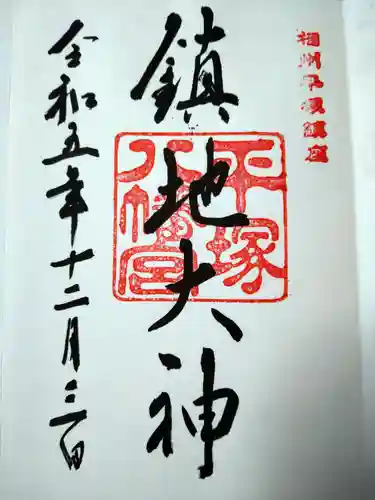 相州平塚鎮座
鎮地大神
平塚
八幡宮
令和五年十二月三日